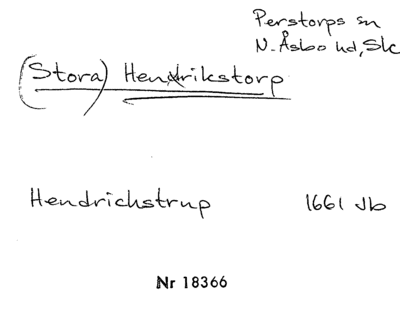 Perstorps sn
N. Åsbo hd, Sk
(Stora) Henrikstorp
Hendrichstrup 1661 Jb
Nr 18366